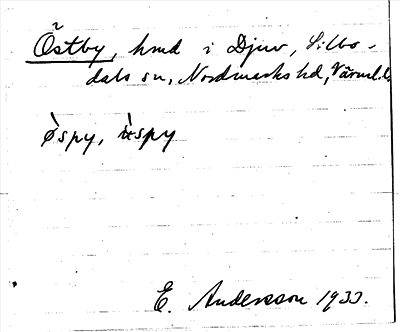 Östby, hmd i Djuv, Silbo-
dals sn, Nordmarks hd, Värml. l.
òspy, ùspy
E. Andersson 1933.